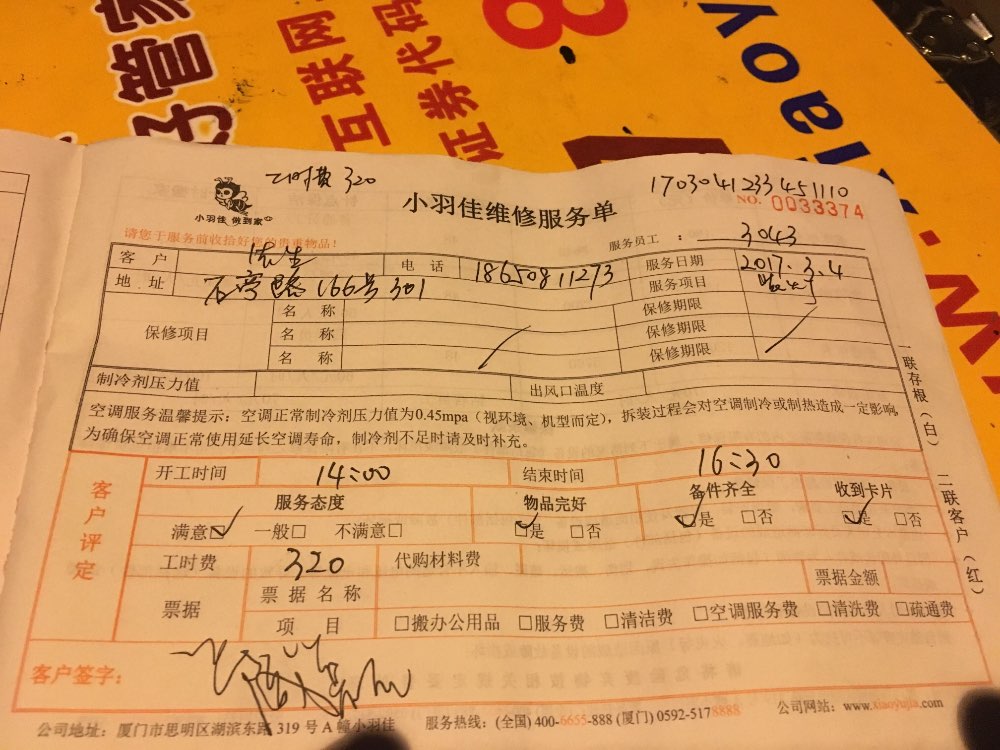 好管家
互联网
证券代码
8
xiaoyu
工时费 320
1703041233451110
小羽佳 做到家
小羽佳维修服务单
NO. 0033374
请您于服务前收拾好您的贵重物品!
服务员工 : 3043
客 户
电 话 18650811273
服务日期 2017.3.4
地 址 166号301
服务项目
保修项目
名 称
保修期限
名 称
保修期限
名 称
保修期限
制冷剂压力值
出风口温度
空调服务温馨提示：空调正常制冷剂压力值为0.45mpa（视环境、机型而定），拆装过程会对空调制冷或制热造成一定影响,
为确保空调正常使用延长空调寿命，制冷剂不足时请及时补充。
一联存根（白） 二联客户（红）
客户评定
开工时间 14:00
结束时间 16:30
服务态度 物品完好 备件齐全 收到卡片
满意☑ 一般□ 不满意□ ☑是 □否 ☑是 □否 ☑是 □否
工时费 320 代购材料费
票据
票 据 名 称
票据金额
项 目 □搬办公用品 □服务费 □清洁费 □空调服务费 □清洗费 □疏通费
客户签字：
公司地址：厦门市思明区湖滨东路 319 号 A 幢小羽佳 服务热线：(全国) 400-6655-888 (厦门) 0592-5178888 公司网站：www.xiaoyujia.com